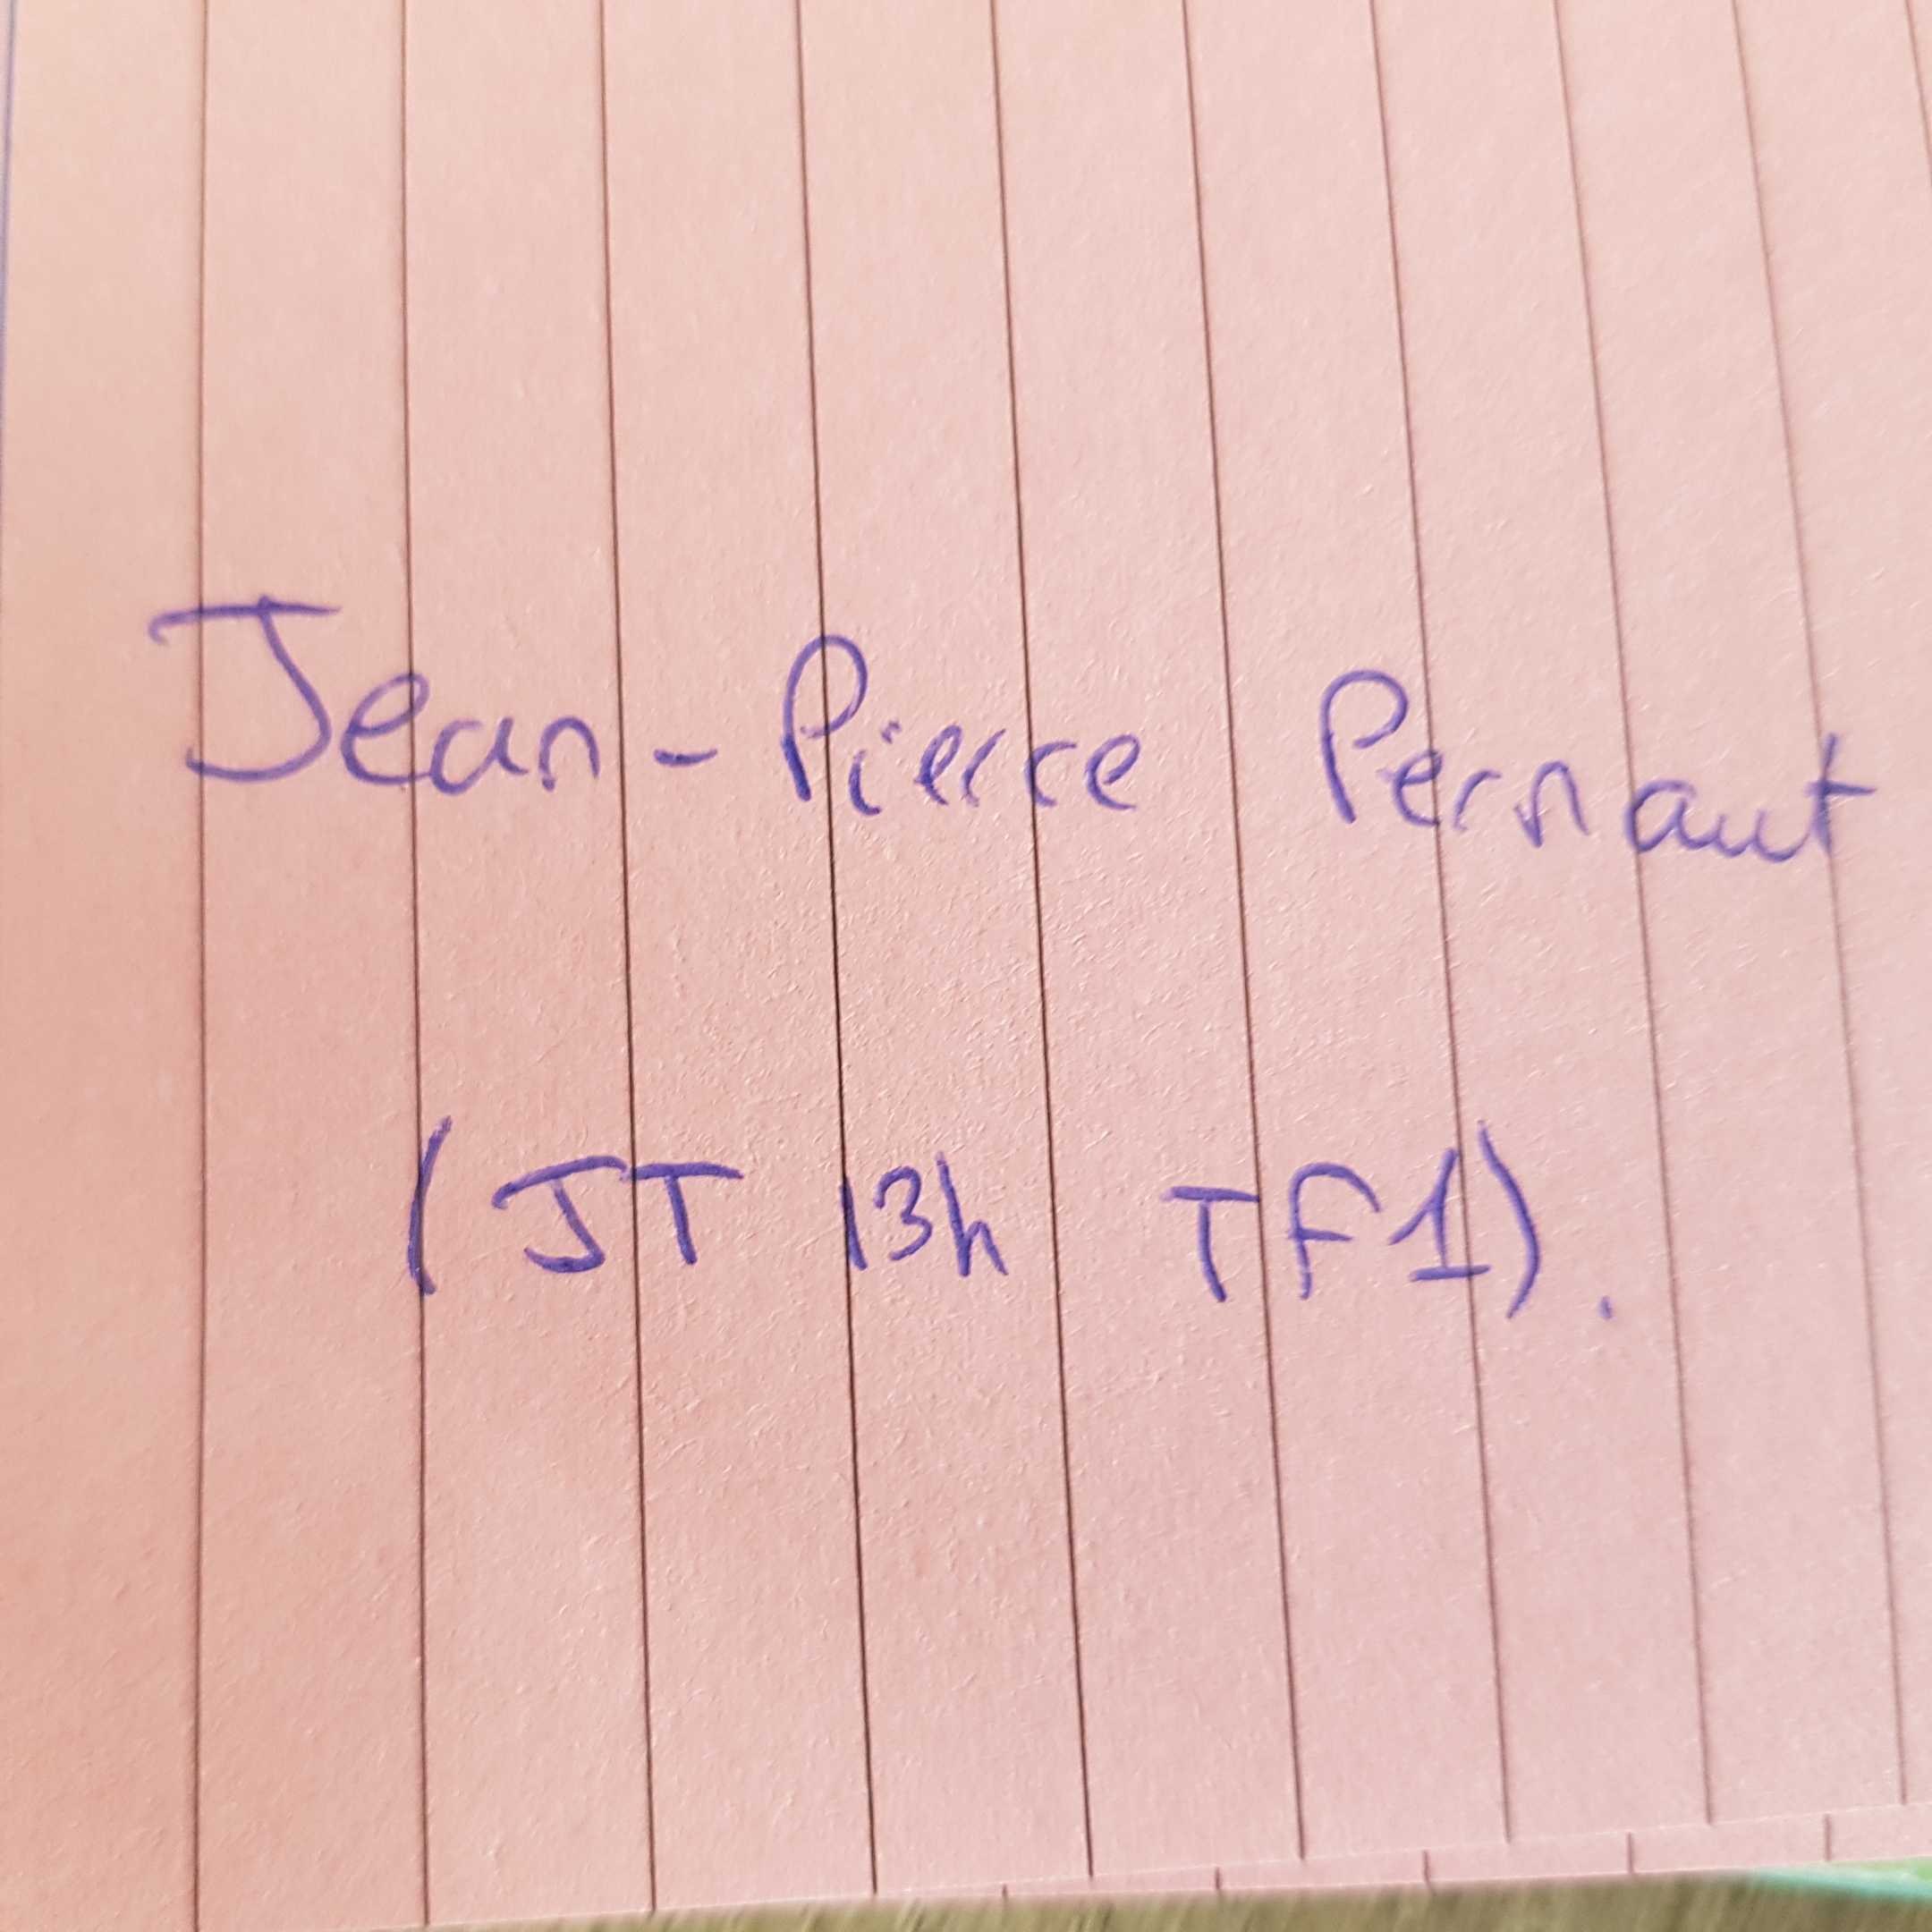 Jean-Pierre Pernaut
(JT 13h TF1).